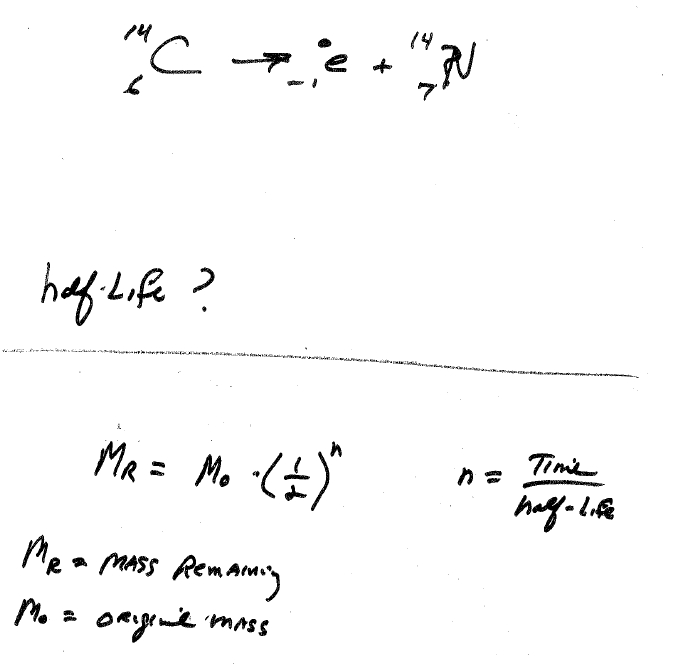 ¹⁴₆C → ⁰₋₁e + ¹⁴₇N
half-Life ?
M_R = M₀ · (1/2)ⁿ n = Time / half-Life
M_R = MASS Remaining
M₀ = original mass